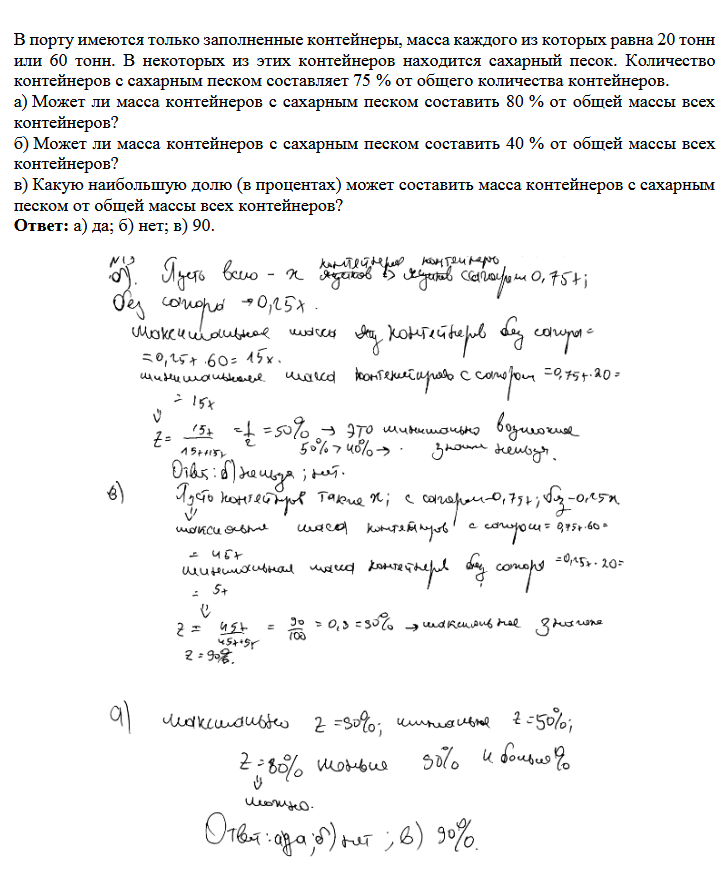 В порту имеются только заполненные контейнеры, масса каждого из которых равна 20 тонн
или 60 тонн. В некоторых из этих контейнеров находится сахарный песок. Количество
контейнеров с сахарным песком составляет 75 % от общего количества контейнеров.
а) Может ли масса контейнеров с сахарным песком составить 80 % от общей массы всех
контейнеров?
б) Может ли масса контейнеров с сахарным песком составить 40 % от общей массы всех
контейнеров?
в) Какую наибольшую долю (в процентах) может составить масса контейнеров с сахарным
песком от общей массы всех контейнеров?
Ответ: а) да; б) нет; в) 90.
N13 контейнеров контейнеры
б). Пусть всего - x с сахаром 0,75x;
без сахара → 0,25x.
Максимальная масса контейнеров без сахара =
= 0,25x · 60 = 15x.
минимальная масса контейнеров с сахаром = 0,75x · 20 =
= 15x
⇓
Z = 15x / 15x+15x = 1/2 = 50% → это минимально возможное
50% > 40% → значит нельзя.
Ответ: б) нельзя; нет.
в) Пусть контейнеров также x; с сахаром - 0,75x; без - 0,25x
⇓
максимальная масса контейнеров с сахаром = 0,75x · 60 =
= 45x
минимальная масса контейнеров без сахара = 0,25x · 20 =
= 5x
⇓
Z = 45x / 45x+5x = 90/100 = 0,9 = 90% → максимальное значение
Z = 90%.
а) максимально Z = 90%; минимально Z = 50%;
Z = 80% меньше 90% и больше
⇓
можно.
Ответ: а) да; б) нет; в) 90%.